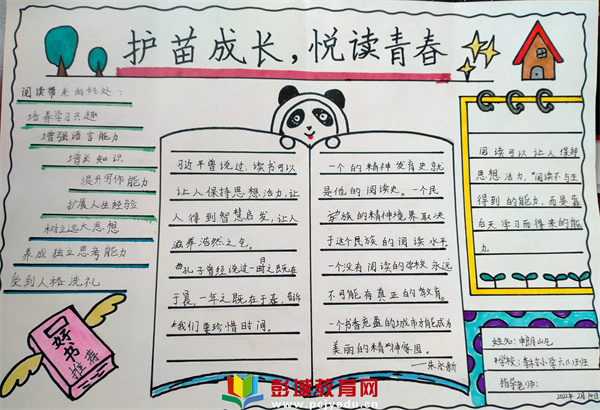 护苗成长，悦读青春
阅读带来的好处：
培养学习兴趣
增强语言能力
增长知识
提升写作能力
扩展人生经验
树立远大思想
养成独立思考能力
受到人格洗礼
好书
推荐
习近平曾说过，读书可以
让人保持思想活力，让
人得到智慧启发，让人
滋养浩然之气。
孔子曾经说过一日之既在
于晨，一年之既在于春，告诉
我们要珍惜时间。
一个的精神发育史就
是他的阅读史。一个民
族的精神境界取决
于这个民族的阅读水平
一个没有阅读的学校永远
不可能有真正的教育。
一个书香充盈的城市才能成为
美丽的精神家园。
——朱永新
阅读可以让人保持
思想活力，"阅读不与生
得到的能力，而是靠
后天学习而得来的能
力。
姓名：
学校：小学六(1)班
指导老师：
2022年2月19日
彭城教育网
www.pcjyedu.cn